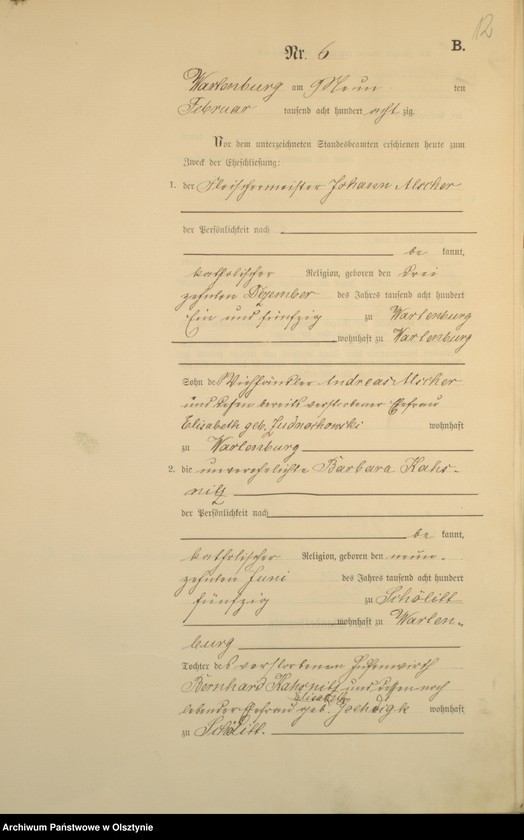 12
B.
Nr. 6
Wartenburg am Neun ten
Februar tausend acht hundert acht zig.
Vor dem unterzeichneten Standesbeamten erschienen heute zum
Zweck der Eheschließung:
1. der Fleischermeister Johann Alscher
der Persönlichkeit nach
be kannt,
katholischer Religion, geboren den Drei
zehnten Dezember des Jahres tausend acht hundert
Ein und fünfzig zu Wartenburg
wohnhaft zu Wartenburg
Sohn des Viehhändler Andreas Alscher
und dessen bereits verstorbener Ehefrau
Elisabeth geb. wohnhaft
zu Wartenburg
2. die unverehelichte Barbara Kahs-
nitz
der Persönlichkeit nach
be kannt,
katholischer Religion, geboren den neun-
zehnten Juni des Jahres tausend acht hundert
fünfzig zu Schölitt
wohnhaft zu Warten-
burg
Tochter des verstorbenen Hufenwirth
Bernhard Kahsnitz und dessen noch
lebender Ehefrau geb. wohnhaft
zu Schölitt.
Archiwum Państwowe w Olsztynie